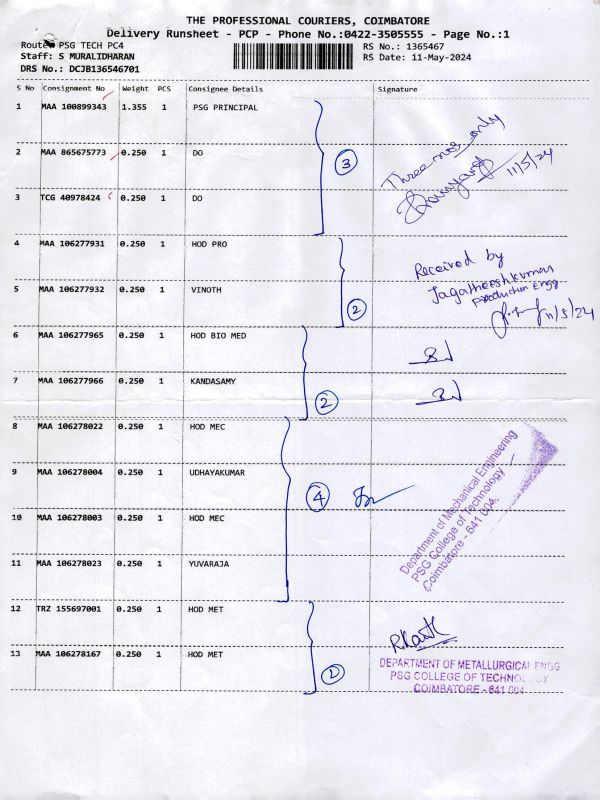 THE PROFESSIONAL COURIERS, COIMBATORE
Delivery Runsheet - PCP - Phone No.:0422-3505555 - Page No.:1
Route: PSG TECH PC4
RS No.: 1365467
Staff: S MURALIDHARAN
RS Date: 11-May-2024
DRS No.: DCJB136546701
S No Consignment No Weight PCS Consignee Details Signature
1 MAA 100899343 1.355 1 PSG PRINCIPAL
2 MAA 865675773 0.250 1 DO
3 Three nos only
11/5/24
3 TCG 40978424 0.250 1 DO
4 MAA 106277931 0.250 1 HOD PRO
Received by
5 MAA 106277932 0.250 1 VINOTH
2 Jagatheeshkumar
Production Engg
11/5/24
6 MAA 106277965 0.250 1 HOD BIO MED
7 MAA 106277966 0.250 1 KANDASAMY
2
8 MAA 106278022 0.250 1 HOD MEC
9 MAA 106278004 0.250 1 UDHAYAKUMAR
4
Department of Mechanical Engineering
PSG College of Technology
Coimbatore - 641 004.
10 MAA 106278003 0.250 1 HOD MEC
11 MAA 106278023 0.250 1 YUVARAJA
12 TRZ 155697001 0.250 1 HOD MET
13 MAA 106278167 0.250 1 HOD MET
DEPARTMENT OF METALLURGICAL ENGG
PSG COLLEGE OF TECHNOLOGY
COIMBATORE - 641 004